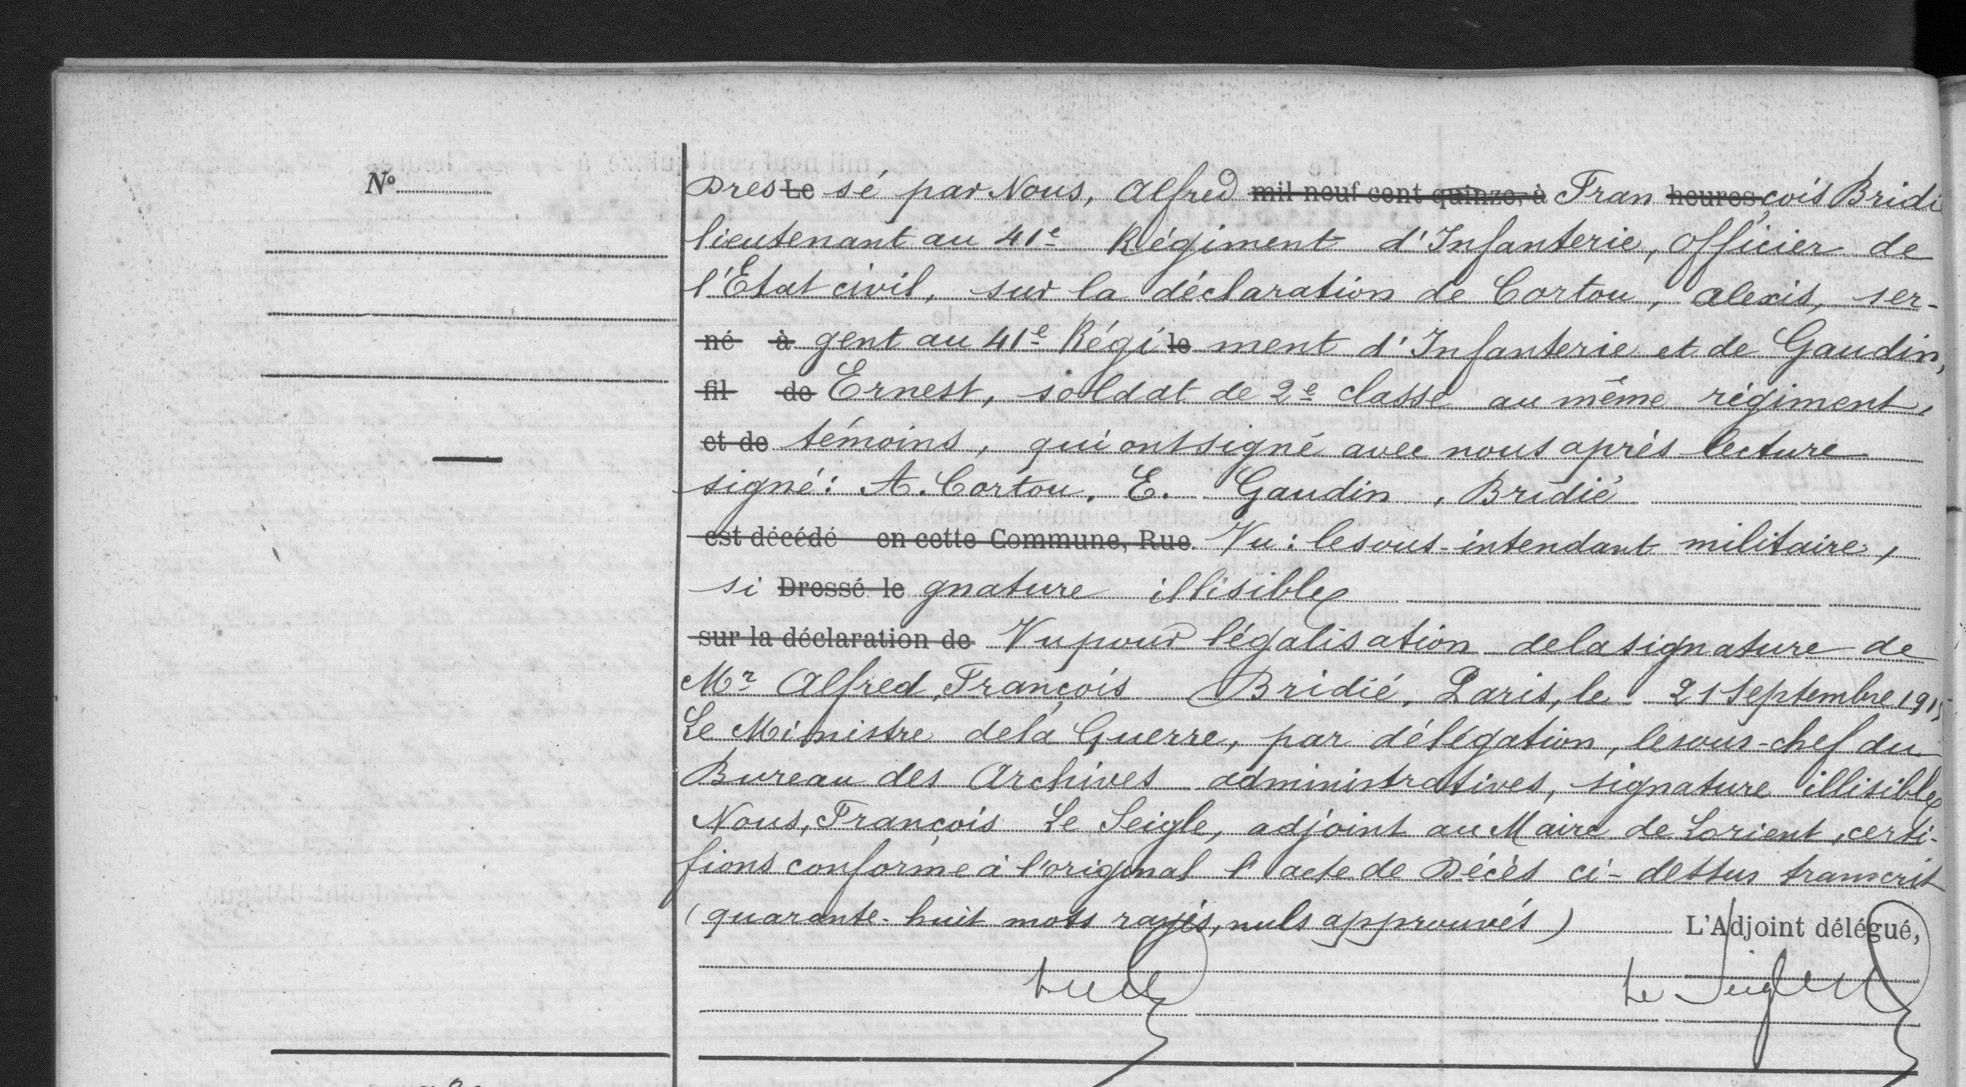 N°
Dres Le sé par Nous, Alfred mil neuf cent quinze, à Fran heures, çois Bridi
lieutenant au 41e Régiment d'Infanterie, Officier de
l'Etat civil, sur la déclaration de Cortou, Alexis, ser-
né à gent au 41e Régi le ment d'Infanterie et de Gaudin,
fil de Ernest, soldat de 2e classe au même régiment,
et de témoins, qui ont signé avec nous après lecture
signé: A. Cortou. E. Gaudin, Bridié
est décédé en cette Commune, Rue Vu: le sous-intendant militaire,
si Dressé le gnature illisible
sur la déclaration de Vu pour légalisation de la signature de
Mr Alfred, François Bridié, Paris, le 21 Septembre 1915
Le Ministre de la Guerre, par délégation, le sous-chef du
Bureau des Archives administratives, signature illisible
Nous, François Le Seigle, adjoint au Maire de Lorient, certi-
fions conforme à l'original l'acte de Décès ci-dessus transcrit
(quarante-huit mots rayés, nuls approuvés) L'Adjoint délégué,
Le Seigle